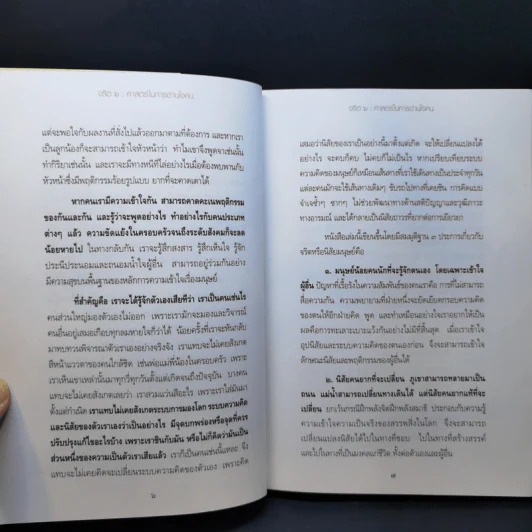 จริต ๖ : ศาสตร์ในการอ่านใจคน
แต่จะพอใจกับผลงานที่สั่งไปแล้วออกมาตามที่ต้องการ และหากเรา
เป็นลูกน้องก็จะสามารถเข้าใจหัวหน้าว่า ทำไมเขาจึงพูดจาเช่นนั้น
ทำกิริยาเช่นนั้น และเราจะมีทางหนีทีไล่อย่างไรเมื่อต้องพบพานกับ
หัวหน้าซึ่งมีพฤติกรรมร้อยรูปแบบ ยากที่จะคาดเดาได้
หากคนเรามีความเข้าใจกัน สามารถคาดคะเนพฤติกรรม
ของกันและกัน และรู้ว่าจะพูดอย่างไร ทำอย่างไรกับคนประเภท
ต่างๆ แล้ว ความขัดแย้งในครอบครัวจนถึงระดับสังคมก็จะลด
น้อยหายไป ในทางกลับกัน เราจะรู้สึกสงสาร รู้สึกเห็นใจ รู้จัก
ประนีประนอมและถนอมน้ำใจผู้อื่น สามารถอยู่ร่วมกันอย่าง
มีความสุขบนพื้นฐานของหลักการความเข้าใจเรื่องมนุษย์
ที่สำคัญคือ เราจะได้รู้จักตัวเองเสียทีว่า เราเป็นคนเช่นไร
คนส่วนใหญ่มองตัวเองไม่ออก เพราะเรามักจะมองและวิจารณ์
คนอื่นอยู่เสมอเกือบทุกลมหายใจก็ว่าได้ น้อยครั้งที่เราจะหันกลับ
มาทบทวนพิจารณาตัวเราเองอย่างจริงจัง เราแทบจะไม่เคยสังเกต
สีหน้าแววตาของคนใกล้ชิด เช่นพ่อแม่พี่น้องในครอบครัว เพราะ
เราเห็นเขาเหล่านั้นมาทุกวี่ทุกวันตั้งแต่เกิดจนถึงปัจจุบัน บางคน
แทบจะไม่เคยสังเกตเลยว่า เราสวมแว่นสีอะไร เพราะเราใส่มันมา
ตั้งแต่กำเนิด เราแทบไม่เคยสังเกตระบบการมองโลก ระบบความคิด
และนิสัยของตัวเราเองว่าเป็นอย่างไร มีจุดบกพร่องหรือจุดที่ควร
ปรับปรุงแก้ไขอะไรบ้าง เพราะเราชินกับมัน หรือไม่ก็คิดว่ามันเป็น
ส่วนหนึ่งของความเป็นตัวเราเสียแล้ว เราก็เป็นคนเช่นนี้แหละ จึง
แทบจะไม่เคยคิดจะเปลี่ยนระบบความคิดของตัวเอง เพราะคิด
๖
จริต ๖ : ศาสตร์ในการอ่านใจคน
เสมอว่านิสัยของเราเป็นอย่างนี้มาตั้งแต่เกิด จะให้เปลี่ยนแปลงได้
อย่างไร จะคบก็คบ ไม่คบก็ไม่เป็นไร หากเปรียบเทียบระบบ
ความคิดของมนุษย์ก็เหมือนเส้นทางที่เราใช้เดินทางเป็นประจำทุกวัน
แต่ละคนมักจะใช้เส้นทางเดิมๆ ขับรถไปทางที่เคยชิน การคิดแบบ
จำเจซ้ำๆ ซากๆ ไม่ช่วยพัฒนาทางด้านสติปัญญาและวุฒิภาวะ
ทางอารมณ์ และได้กลายเป็นนิสัยถาวรที่ยากต่อการเยียวยา
หนังสือเล่มนี้เขียนขึ้นโดยมีสมมติฐาน ๓ ประการเกี่ยวกับ
จริตหรือนิสัยมนุษย์คือ
๑. มนุษย์น้อยคนนักที่จะรู้จักตนเอง โดยเฉพาะเข้าใจ
ผู้อื่น ปัญหาที่เรื้อรังในความสัมพันธ์ของคนเราคือ การที่ไม่สามารถ
สื่อความกัน ความพยายามที่ฝ่ายหนึ่งจะยัดเยียดกรอบความคิด
ของตนให้อีกฝ่ายคิด พูด และทำเหมือนอย่างใจเราอยากให้เป็น
ผลคือการทะเลาะเบาะแว้งกันอย่างไม่มีที่สิ้นสุด เมื่อเราเข้าใจ
อุปนิสัยและระบบความคิดของตนเองก่อน จึงจะสามารถเข้าใจ
ลักษณะนิสัยและพฤติกรรมของผู้อื่นได้
๒. นิสัยคนยากที่จะเปลี่ยน ภูเขาสามารถทลายมาเป็น
ถนน แม่น้ำก็สามารถเปลี่ยนทางเดินได้ แต่นิสัยคนยากแท้ที่จะ
เปลี่ยน ยกเว้นกรณีฝึกพลังจิตฝึกพลังสมาธิ ประกอบกับความรู้
ความเข้าใจความเป็นจริงของสรรพสิ่งในโลก จึงจะสามารถ
เปลี่ยนแปลงนิสัยได้ไปในทางที่ชอบ ไปในทางที่สร้างสรรค์
และไปในทางที่เป็นมงคลแก่ชีวิต ทั้งต่อตัวเองและผู้อื่น
๗